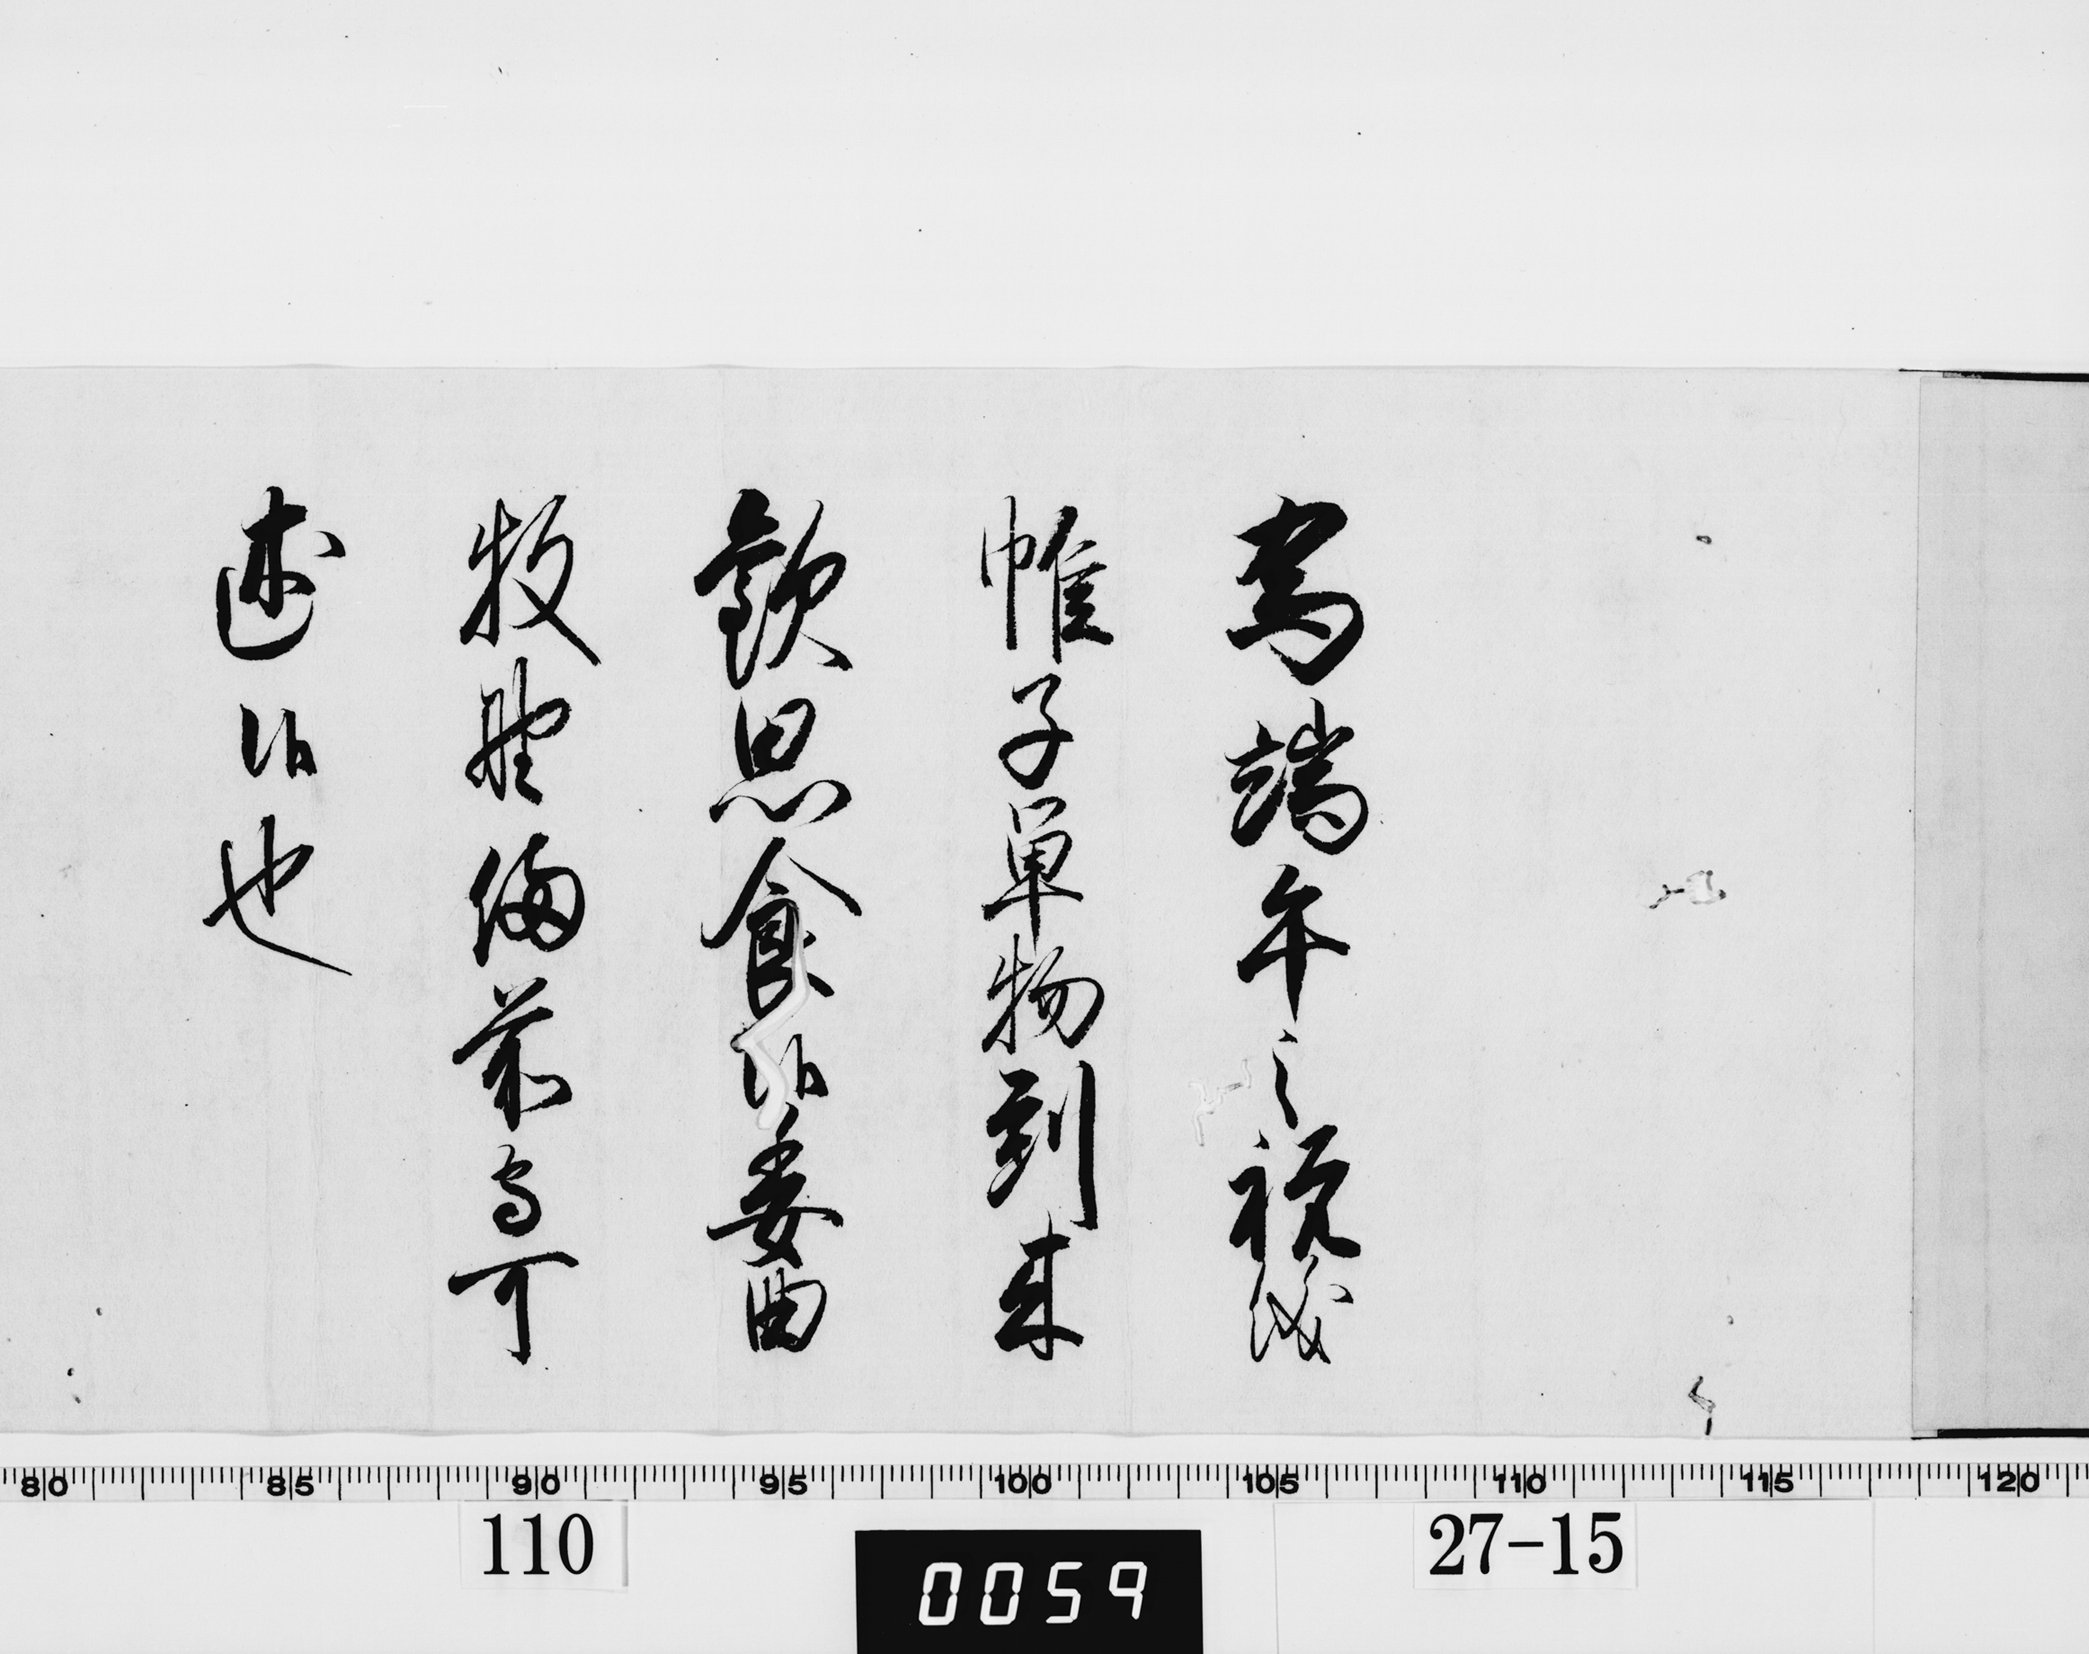 為端午之祝儀
帷子単物到来
歓思食候委曲
牧野備前守可
述候也
80 85 90 95 100 105 110 115 120
110
0059
27-15